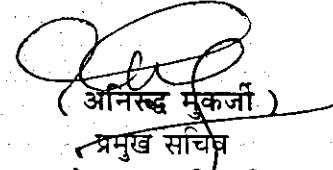 ( अनिरुद्ध मुकर्जी )
प्रमुख सचिव